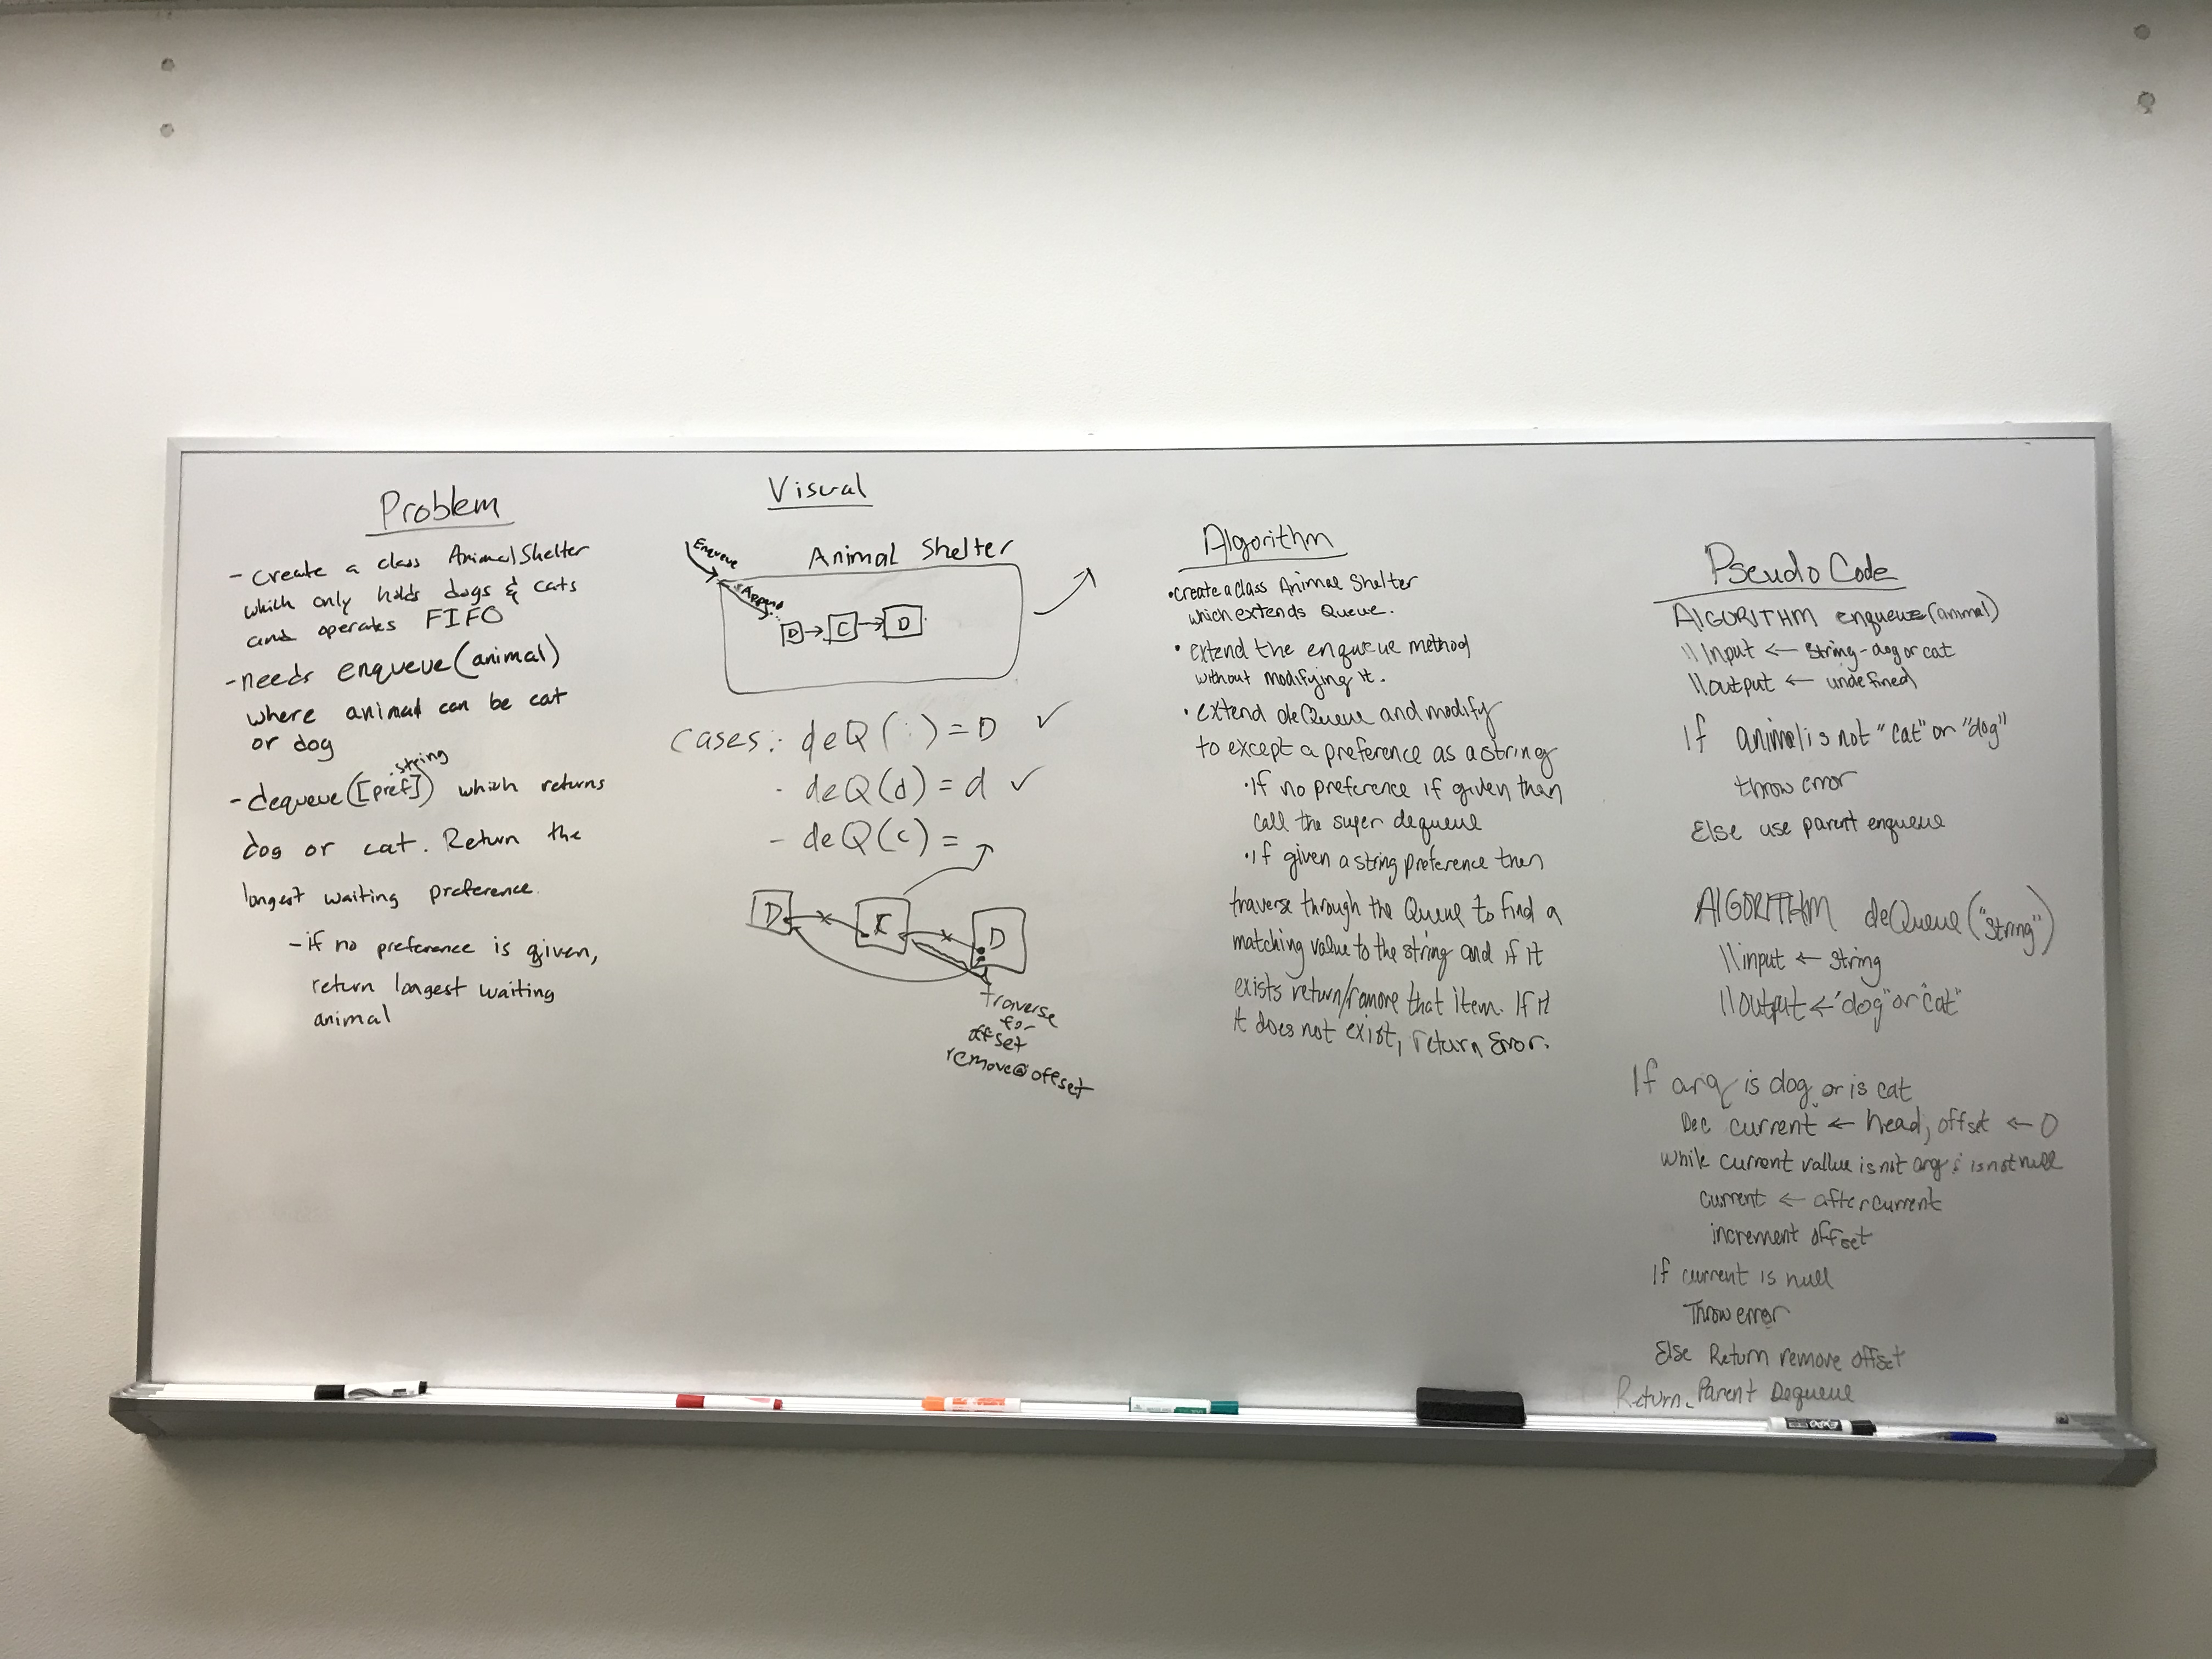 Problem
- Create a class AnimalShelter
which only holds dogs & cats
and operates FIFO
- needs enqueue(animal)
where animal can be cat
or dog
string
- dequeue([pref]) which returns
dog or cat. Return the
longest waiting preference.
- if no preference is given,
return longest waiting
animal
Visual
Enqueue
Animal Shelter
Append
D → C → D
Cases: deQ( ) = D ✓
- deQ(d) = d ✓
- deQ(c) =
D C D
traverse
for
offset
remove@offset
Algorithm
• create a class Animal Shelter
which extends Queue.
• extend the enqueue method
without modifying it.
• extend deQueue and modify
to except a preference as a string
• If no preference if given than
call the super dequeue
• if given a string preference then
traverse through the Queue to find a
matching value to the string and if it
exists return/remove that item. If it
it does not exist, return Error.
Pseudo Code
ALGORITHM enqueue(animal)
\\ Input ← string - dog or cat
\\ output ← undefined
If animal is not "cat" or "dog"
throw error
Else use parent enqueue
AlGORITHM deQueue("string")
\\ input ← string
\\ output ← "dog" or "cat"
If arg is dog or is cat
Dec current ← head, offset ← 0
while current vallue is not arg & is not null
current ← after current
increment offset
If current is null
Throw error
Else Return remove offset
Return Parent Dequeue